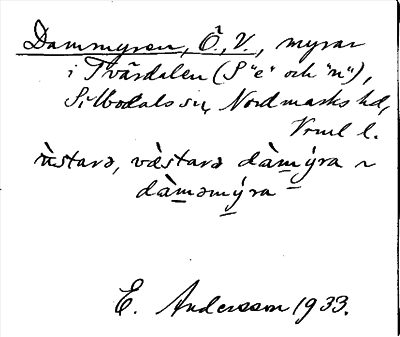 Dammyren, Ö, V., myrar
i Tvärdalen (S "e" och "n"),
Silbodals sn, Nordmarks hd,
Vrml l.
ùstarə, vä̀starə dàm̲ýra ~
dàm̲əmýra
E. Andersson 1933.